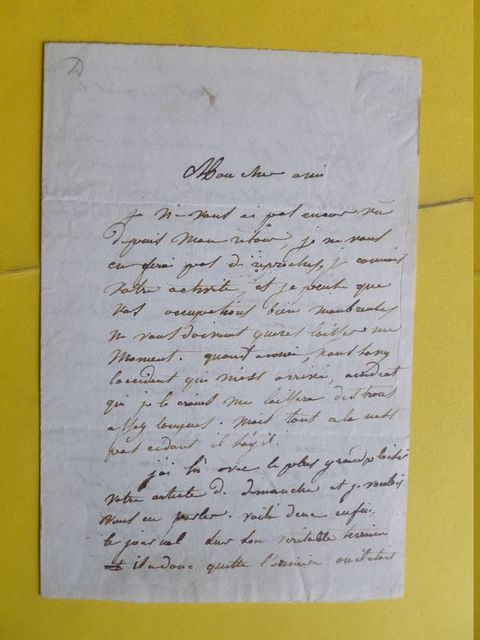 D
Mon cher ami
je ne vous ai pas encore vu
depuis mon retour, je ne vous
en ferai pas de reproches, je connais
votre activité, et je pense que
vos occupations bien nombreuses
ne vous doivent guères laisser un
moment. quant à moi, vous
l'accident qui m'est arrivé, accident
qui je le crains me laissera des traces
assez longues. mais tout a la
pas cedant il s'agit.
j'ai lu avec le plus grand plaisir
votre article de dimanche et je voulais
vous en parler. voilà donc enfin
le journal sur son veritable terrain
il a donc quitté l'ornière ou il etait